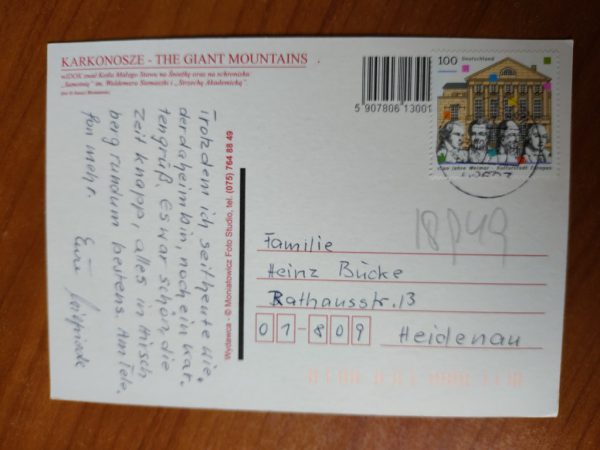 KARKONOSZE - THE GIANT MOUNTAINS
Kotła Małego Stawu na Śnieżkę oraz na schroniska
„Samotnię” im. Waldemara Siemaszki i „Strzechę Akademicką”
Trotzdem ich seit heute wie-
der daheim bin, noch ein Kar-
tengruß. Es war schön, die
Zeit knapp, alles in Hirsch
berg rundum bestens. Am Tele-
fon mehr.
Eure
Wydawca - © Moniatowicz Foto Studio, tel. (075) 764 88 49
5 907806 13001
100 Deutschland
Jahre Weimar - Kulturstadt Europas
18p49
Familie
Heinz Bücke
Rathausstr. 13
01-809 Heidenau